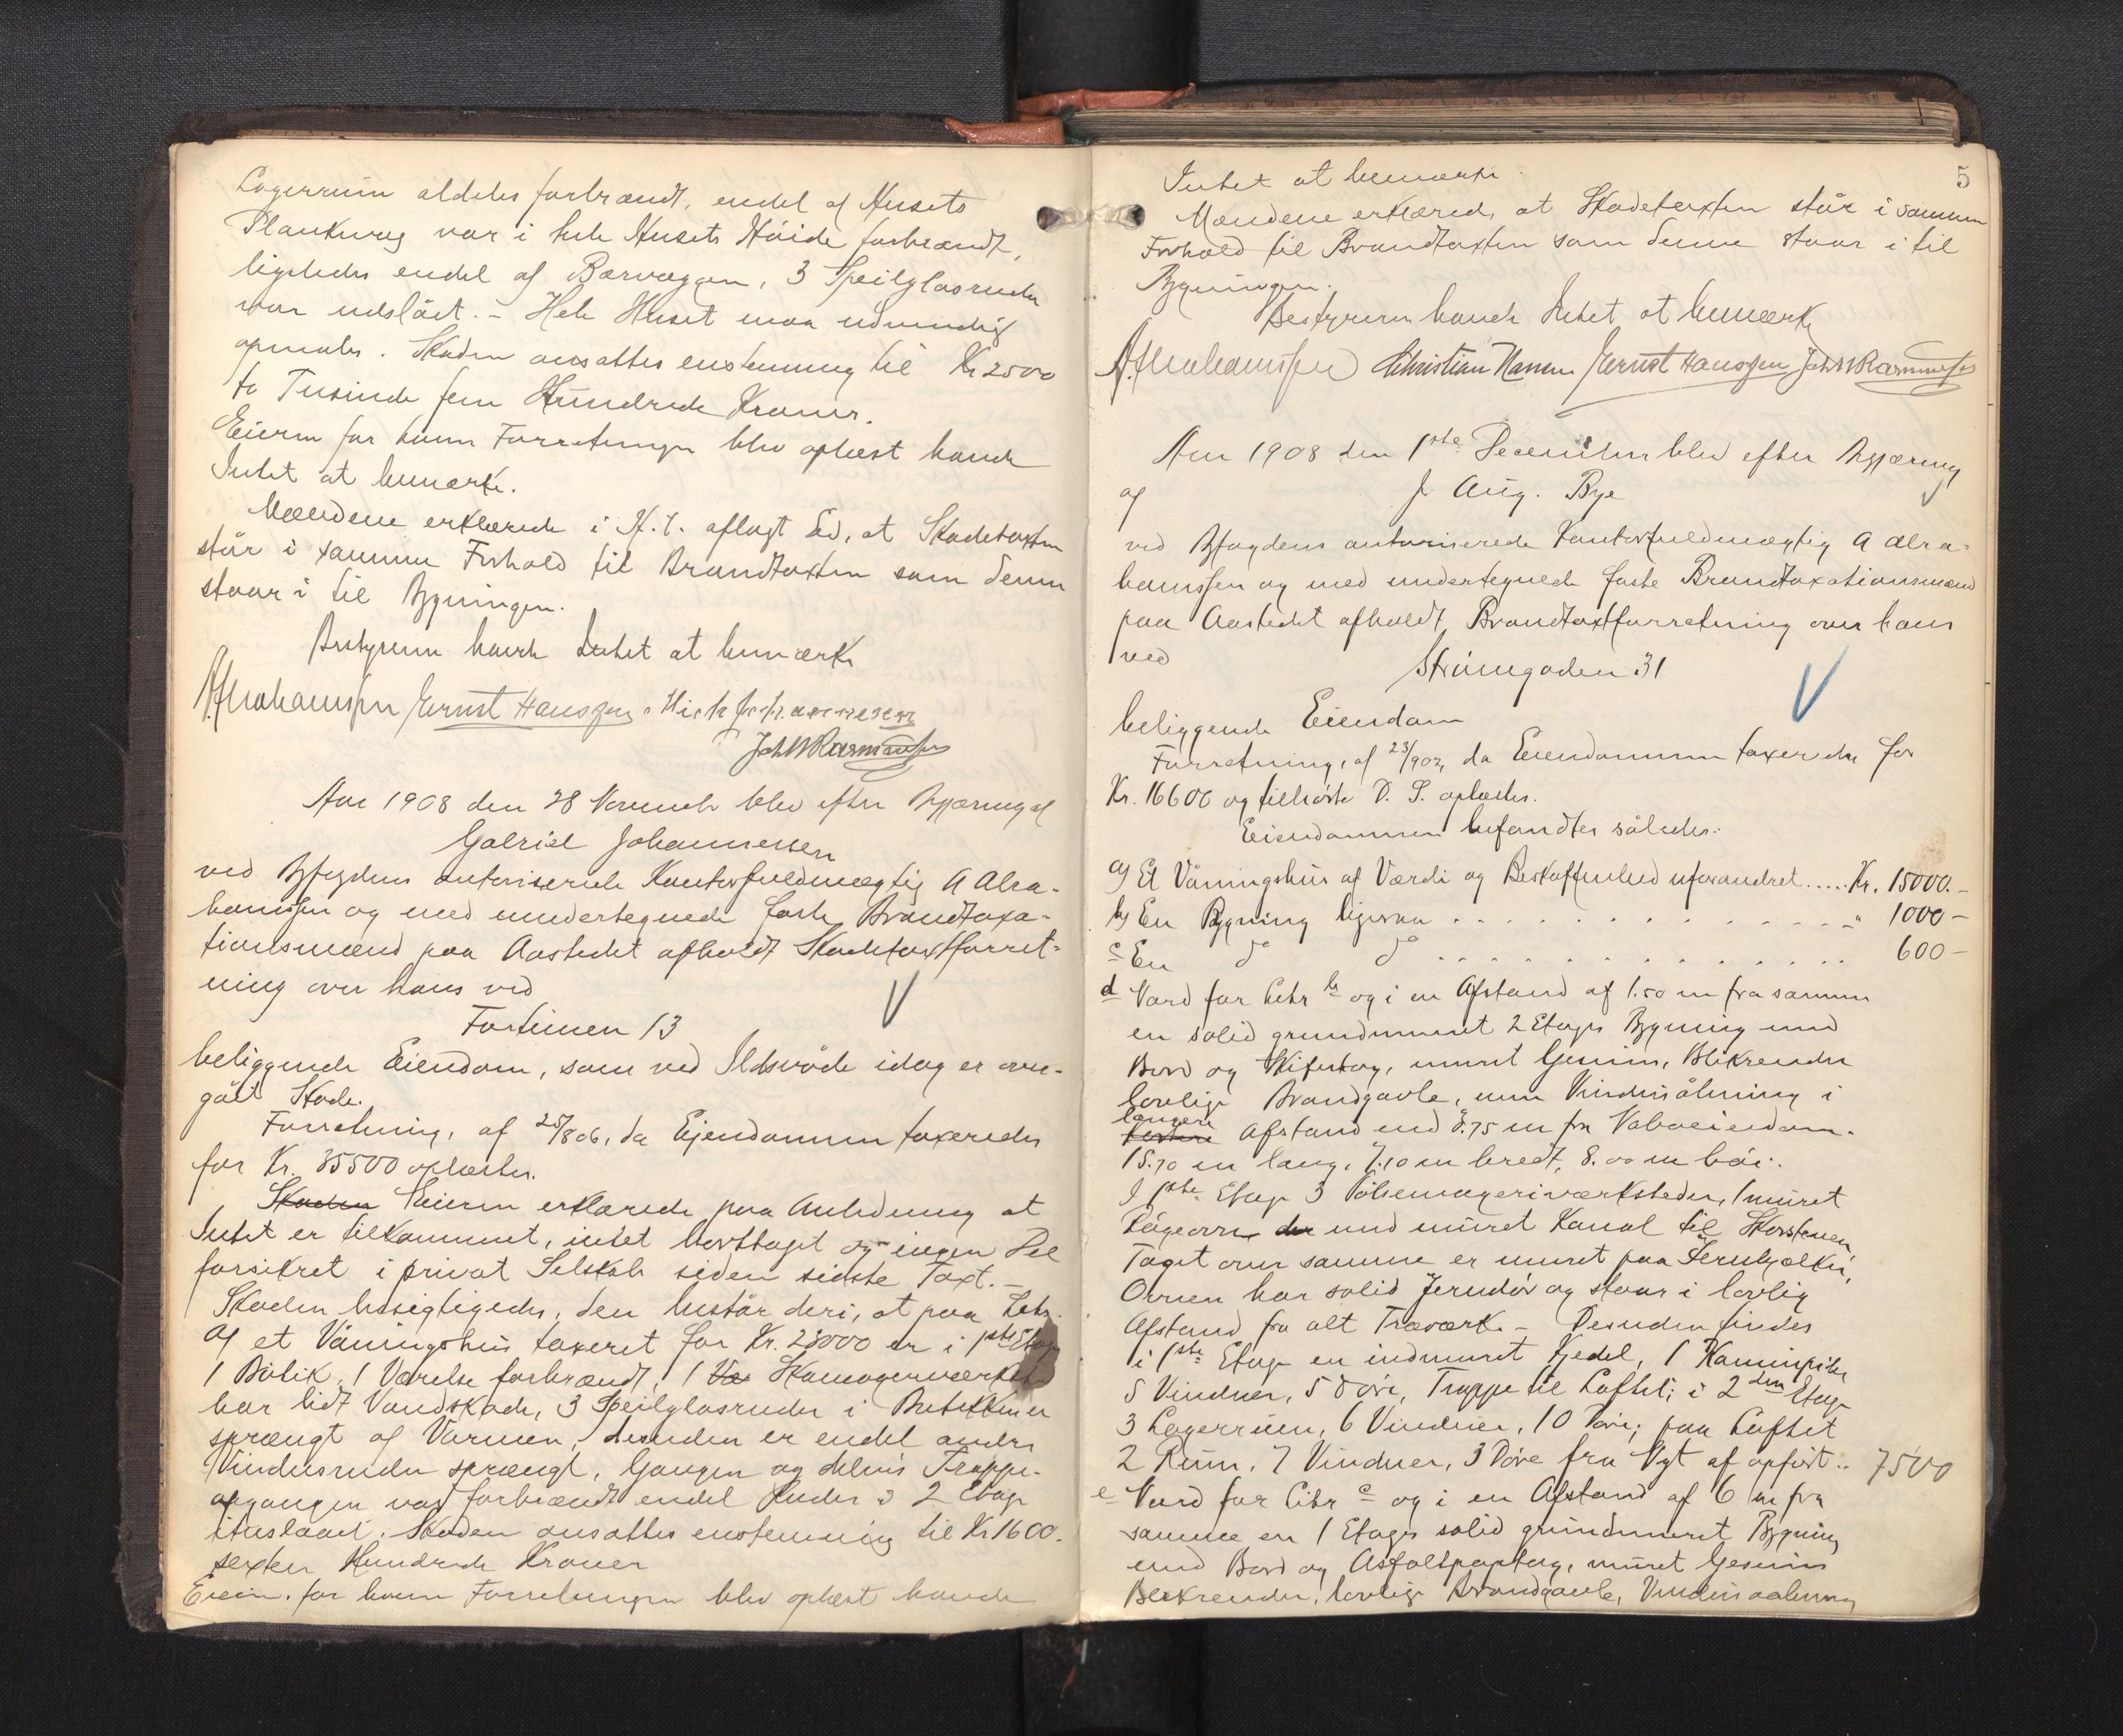 Lagerrum aldeles forbrændt, endel af Husets
Plankevæg var i hele Husets Høide forbrændt,
ligeledes endel af Bærvæggen, 3 Speilglasruder
var udslået. – Hele Huset maa udvendig
opmales. Skaden ansattes enstemmig til Kr 2500
to Tusinde fem Hundrede Kroner.
Eieren for hvem Forretningen blev oplæst havde
Intet at bemærke.
Mændene erklærede i H. t. aflagt Ed, at Skadetaxten
står i samme Forhold til Brandtaxten som denne
staar i til Bygningen.
Bestyreren havde Intet at bemærke
A. Abrahamssen Ernst Hanssen Mich Johannesen
Joh W Rasmussen
Aar 1908 den 28 Novemeb blev efter Begjæring af
Gabriel Johannessen
ved Byfogdens autoriserede Kontorfuldmægtig A Abra-
hamssen og med undertegnede faste Brandtaxa-
tionsmænd paa Aastedet afholdt Skadetaxtforret-
ning over hans ved
Fortunen 13
beliggende Eiendom, som ved Ildsvåde idag er over-
gået Skade.
Forretning, af 25/8 06, da Ejendommen taxeredes
for Kr. 35500 oplæstes.
Skaden Eieren erklærede paa Anledning at
Intet er tilkommet, intet borttaget og ingen Del
forsikret i privat Selskab siden sidste Taxt. –
Skaden besigtigedes, den består deri, at paa Litr.
a) et Våningshus taxeret for Kr. 28000 er i 1ste Etage
1 Butik, 1 Værelse forbrændt, 1 Væ Skomagerværksted
har lidt Vandskade, 3 Speilglasruder i Butikken er
sprængt af Varmen, desuden er endel andre
Vinduesruder sprængt, Gangen og delvis Trappe-
opgangen var forbrændt endel Ruder i 2 Etage
ituslaaet. Skaden ansattes enstemmig til Kr 1600.
sexten Hundrede Kroner
Eieren for hvem Forretningen blev oplæst havde
5
Intet at bemærke.
Mændene erklærede, at Skadetaxten står i samme
Forhold til Brandtaxten som denne staar i til
Bygningen.
Bestyreren havde Intet at bemærke
A. Abrahamssen Christian Hansen Ernst Hanssen Joh W Rasmussen
Aar 1908 den 1ste December blev efter Begjæring
af J Aug. Bye
ved Byfogdens autoriserede Kontorfuldmægtig A Abra-
hamssen og med undertegnede faste Brandtaxationsmænd
paa Aastedet afholdt Brandtaxtforretning over hans
ved Strømgaden 31
beliggende Eiendom
Forretning, af 23/902, da Eiendommen taxeredes for
Kr. 16600 og tilhørte D. S. oplæstes.
Eiendommen befandtes således:
a) Et Våningshus af Værdi og Beskaffenhed uforandret ..... Kr. 15000.–
b) En Bygning ligesaa . . . . . " 1000–
c En do do . . . . . 600–
d Nord for Litr b og i en Afstand af 1.50 m fra samme
en solid grundmuret 2 Etages Bygning med
Bord og Skifertag, muret Gesims, Blikrender
lovlige Brandgavle, men Vinduesåbning i
længere
kortere Afstand end 3.75 m fra Naboeiendom.
15.70 m lang, 7.10 m bredt, 8.00 m høi.
I 1ste Etage 3 Pølsemageriværksteder, 1 muret
Røgeovn der med muret Kanal til Skorstenen,
Taget over samme er muret paa Jernbjælker,
Ovnen har solid Jerndør og staar i lovlig
Afstand fra alt Træværk. – Desuden findes
i 1ste Etage en indmuret Kjedel, 1 Kaminpibe
5 Vinduer, 5 Døre, Trappe til Loftet; i 2den Etage
3 Lagerrum, 6 Vinduer, 10 Døre; paa Loftet
2 Rum, 7 Vinduer, 3 Døre fra Nyt af opført .. 7500
e Nord for Litr c og i en Afstand af 6 m fra
samme en 1 Etages solid grundmuret Bygning
med Bord og Asfaltpaptag, muret Gesims
Blikrender, lovlige Brandgavle, Vinduesaabning